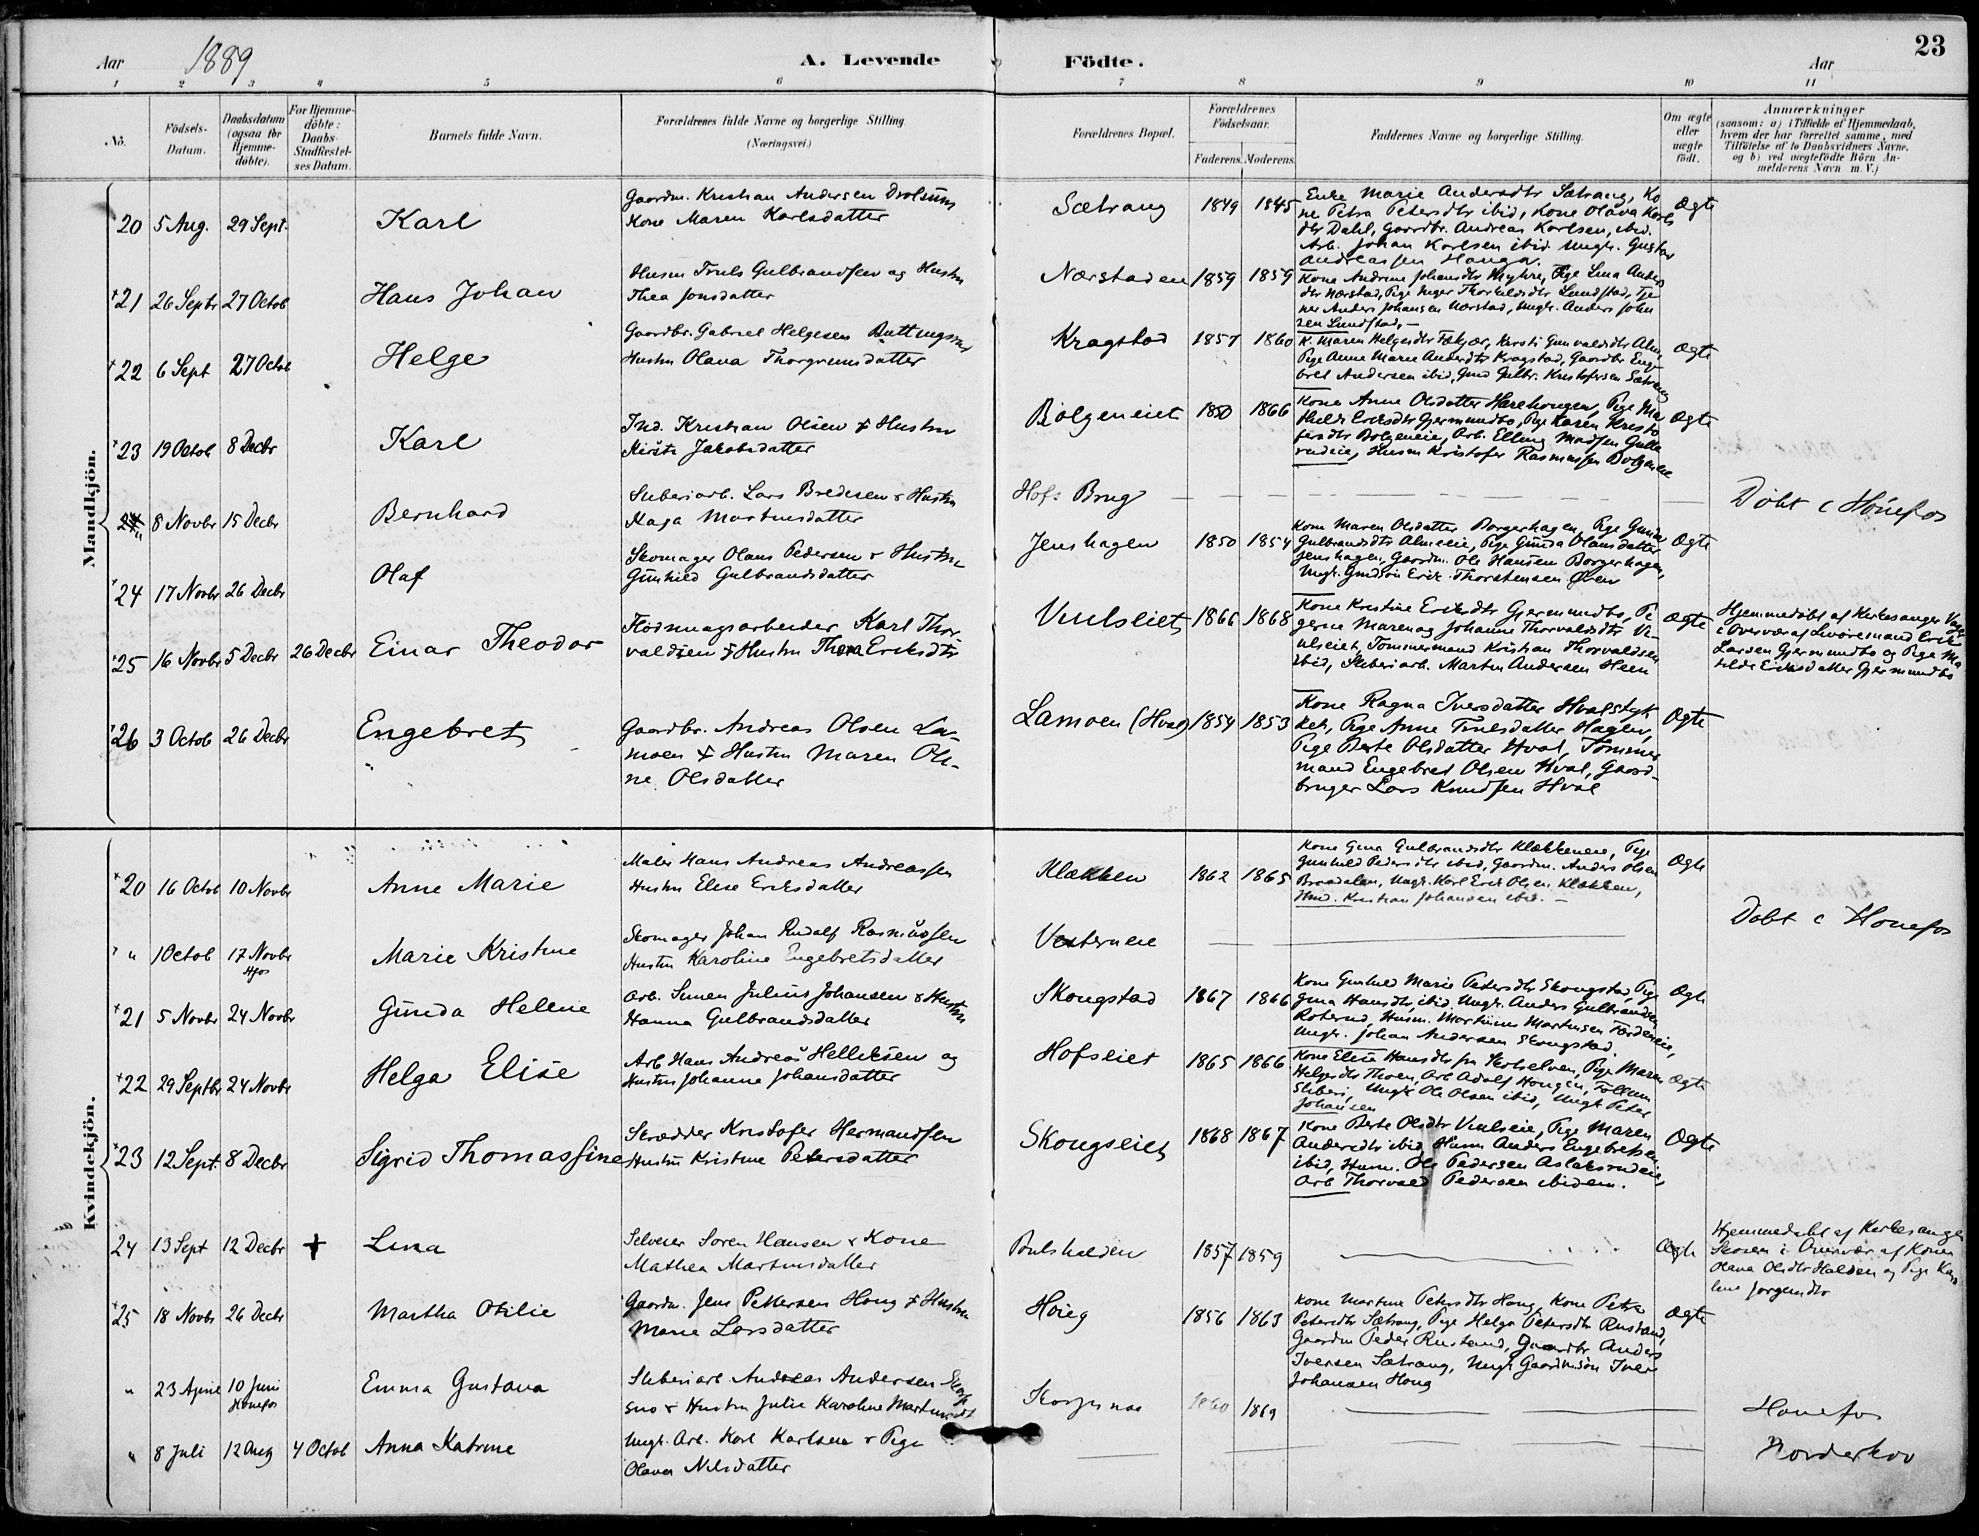 Aar 1889 A. Levende Födte. Aar 23
1 2 3 4 5 6 7 8 9 10 11
No.
Födsels-Datum.
Daabsdatum (ogsaa for Hjemme-döbte).
For Hjemme-döbte: Daabs-Stadfæstel-ses Datum.
Barnets fulde Navn.
Forældrenes fulde Navne og borgerlige Stilling. (Næringsvei.)
Forældrenes Bopæl.
Forældrenes Födselsaar.
Faderens. Moderens.
Faddernes Navne og borgerlige Stilling.
Om ægte eller uægte födt.
Anmærkninger
(saasom: a) i Tilfælde af Hjemmedaab,
hvem der har forrettet samme, med
Tilföielse af to Daabsvidners Navne,
og b) ved uægtefödte Börn An-
melderens Navn m. V.)
Mandkjön.
20 5 Aug. 29 Sept. Karl
Gaardm. Kristian Andersen Drolsum
Kone Maren Karlsdatter
Sætrang 1849 1845
Enke Marie Andersdtr Sætrang, Ko
ne Petra Petersdtr ibid, Kone Olava Karls
dtr Dahl, Gaardbr. Andreas Karlsen, ibid.
Arb. Johan Karlsen ibid. Ungk. Gustav
Andreassen Hauga.
Ægte
21 26 Septr 27 Octob Hans Johan
Husm Truls Gulbrandsen og Hustru
Thea Jonsdatter
Nærstadeie 1859 1859
22 6 Sept 27 Octob Helge
Gaardbr. Gabriel Helgesen
Hustru Olava Thorgrimsdatter
Kragstad 1857 1860
Pige Anne Marie Andersdtr Kragstad, Gaardbr Enge
bret Andersen ibid,
Ægte
23 19 Octob 8 Decbr Karl
Ind. Kristian Olsen & Hustru
Kirsti Jakobsdatter
Bolgeneiet 1850 1866
Kone Anne Olsdatter Harehougen, Pige Ma
thilde Eriksdtr Gjermundbo, Pige Karen Kristo
fersdtr Bolgeneie, Arb. Elling Madsen
Husm Kristofer Rasmussen Bolgeneie
Ægte
8 Novbr 15 Decbr Bernhard
Sliberiarb. Lars Bredesen & Hustru
Kaja Martinsdatter
Hofs Brug
Döbt i Hönefos
24 17 Novbr 26 Decbr Olaf
Skomager Olaus Pedersen & Hustru
Gunhild Gulbrandsdatter
Jenshagen 1850 1854
Kone Maren Olsdatter Borgerhagen, Pige Gunda
Gulbrandsdtr Almeeie, Pige Gunda Olausdatter
Jenshagen, Gaardm. Ole Hansen Borgerhagen,
Ungk. Erik Thorstensen Oven
Ægte
25 16 Novbr 5 Decbr 26 Decbr Einar Theodor
Flödningsarbeider Karl Thor-
valdsen & Hustru Thea Eriksdtr
Veulseiet 1866 1868
Kone Kristine Eriksdtr Gjermundbo, Pi
gerne Maren og Johanne Thorvaldsdtr Ve-
ulseiet, Tömmermand Kristian Thorvaldsen
ibid, Sliberiarb. Martin Andersen Heen
Ægte
Hjemmedöbt af Kirkesanger
i Overvær af Erik
Larsen Gjermundbo og Pige Ma
tilde Eriksdatter Gjermundbo
26 3 Octob 26 Decbr Engebret
Gaardbr. Andreas Olsen La-
moen & Hustru Maren Oli-
ne Olsdatter
Lamoen (Hval) 1854 1853
Kone Ragna Iversdatter Hvalstyk
ket, Pige Anne Trulsdatter Hagen,
Pige Berte Olsdatter Hval, Tömmer
mand Engebret Olsen Hval, Gaard-
bruger Lars Knudsen Hval
Ægte
Kvindekjön.
20 16 Octob 10 Novbr Anne Marie
Maler Hans Andreas Andreassen
Hustru Elise Eriksdatter
Klækken 1862 1865
Kone Gina Gulbrandsdtr Klækkeneie, Pige
Gunhild Pedersdtr ibid, Gaardm. Anders Olsen
Braadalen, Ungk. Karl Erik Olsen Klækken,
Ind. Kristian Johansen ibid.
Ægte
" 1 Octob 17 Novbr Hfos Marie Kristine
Skomager Johan Rudolf Rasmussen
Hustru Karoline Engebretsdatter
Vesterneie
Döbt i Hönefos
21 5 Novbr 24 Novbr Gunda Helene
Arb. Simen Julius Johansen & Hustru
Hanna Gulbrandsdatter
Skougstad 1867 1866
Kone Gunhild Marie Pedersdtr Skougstad, Pige
Gina Hansdtr ibid, Ungk. Anders Gulbrandsen
Roterud, Husm. Martinius Martinsen
Ungk. Johan Andersen Skougstad.
Ægte
22 29 Septbr 24 Novbr Helga Elise
Arb Hans Andreas Helliksen og
Hustru Johanne Johansdatter
Hofseiet 1865 1866
Kone Elise Hansdtr fra Skotselven, Pige Maren
Helgesdtr Thoen, Arb Adolf Hougen, Follum
Sliberi, Ungk Ole Olsen ibid, Ungk Peter
Johansen
Ægte
23 12 Sept. 8 Decbr Sigrid Thomassine
Skrædder Kristofer Hermandsen
Hustru Kristine Petersdatter
Skougseiet 1868 1867
Kone Berte Olsdtr Veulseie, Pige Maren
Andersdtr ibid, Husm Anders Engebretsen
ibid, Husm. Ole Pedersen Aslaksrudeie,
Arb Thorvald Pedersen ibidem.
Ægte
24 13 Sept 12 Decbr + Lina
Selveier Sören Hansen & Kone
Mathea Martinsdatter
Poulshalden 1857 1859
Ægte
Hjemmedöbt af Kirkesanger
i Overvær af Konen
Olava Olsdtr Halden og Pige Karo
line Jörgensdtr
25 18 Novbr 26 Decbr Martha Otilie
Gaardm. Jens Pettersen Houg & Hustru
Marie Larsdatter
Houg 1856 1863
Kone Martine Petersdtr Houg, Kone Petra
Petersdtr Sætrang, Pige Helga Petersdtr Rustand,
Gaardm Peder Rustand, Gaardbr Anders
Iversen Sætrang, Ungk Gaardmsön Iver
Johansen Houg
Ægte
" 23 April 10 Juni Hönefos Emma Gustava
Sliberiarb Andreas Andersen
& Hustru Julie Karoline Martinsdt
1860 1869
Hönefos
" 8 Juli 12 Aug 4 Octob Anna Katrine
Ungk. Arb. Karl Karlsen & Pige
Olava Nilsdatter
Norderhov